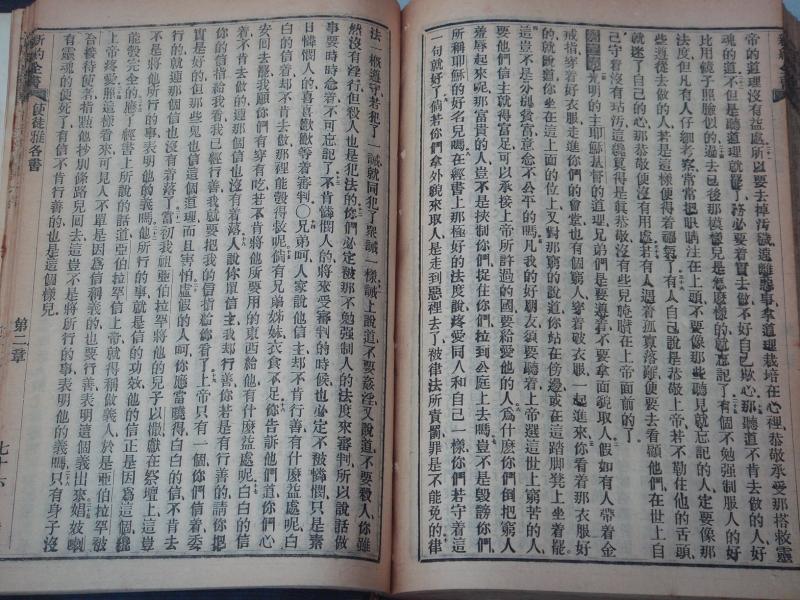 帝的道理沒有益處所以要去掉汚穢遠離惡事拿道理栽培在心裡恭敬承受那搭救靈
魂的道不但是聽道理就罷了務必要着實去做不好自己欺心那聽道不肯去做的人好
比用鏡子照臉似的過去已後那模樣兒是怎麼樣的就忘記了有個不勉强制服人的好
法度但凡有人仔細考察常常把眼睛注在上頭不要像那些聽見就忘記的人定要像那
些遵從去做的人若是這樣便得着福氣了有人自己說是恭敬上帝若不勒住他的舌頭
就迷了自己的心那恭敬便沒有用處若有人遇着孤寡落難便要去看顧他們在世上自
己守着沒有玷汚這纔算得是眞恭敬沒有些兒骯髒在上帝面前的了
光明的主耶穌基督的道理兄弟們是要遵着不要拿面貌取人假如有人帶着金
戒指穿着好衣服走進你們的會堂也有個窮人穿着破衣服一起進來你看着那衣服好
的就說道你坐在這上面的位上又對那窮的說道你站在傍邊或在這踏脚凳上坐着罷
這豈不是外貌貧富意念不公平的嗎凡我的好朋友須要聽着上帝選這世上窮苦的人
要他們信主就得富足可以承接上帝所許過的國要給愛他的人爲什麽你們倒把窮人
羞辱起來呢那富貴的人豈不是挾制你們捉住你們拉到公庭上去嗎豈不是毀謗你們
所稱耶穌的好名兒嗎在經書上那極好的法度說疼愛同人和自己一樣你們若守着這
一句就好了倘若你們拿外貌來取人是走到惡裡去了被律法所責罰罪是不能免的律
法一概遵守若犯了一誡就同犯了衆誡一樣誡上說道不要姦淫又說道不要殺人你雖
然沒有淫行但殺人也是犯法的你們必定被那不勉强制人的法度來審判所以說話做
事要時時念着不可忘記了不肯憐憫人的將來受審判的時候也必定不被憐憫只是素
日憐憫人的喜喜歡歡等着審判○兄弟呵人家說他信主却不肯行善有什麽益處呢白
白的信着却不肯去做那裡能彀得救呢倘有兄弟姊妹衣食不足你告訴他們道你們心
安回去罷我願你們有穿有吃若不肯將他所要用的東西給他有什麽益處呢白白的信
着不肯去做的連那個信也沒有着落人說你單信主我却行善你若是有行善的請你把
你的信指給我看我已經行善我就要把我的信指給你看了上帝只有一個你們信着委
實是好的但那些鬼也信這個道理而且害怕虛假的人呵你應當曉得白白的信不肯去
行的就連那個信也沒有着落了當初我祖亞伯拉罕將他的兒子以撒獻在祭壇上這豈
不是將他所行的事表明他的義嗎他所行的事就是信的功效他的信正是因爲這個纔
能彀完全的應了經書上所說的話道亞伯拉罕信上帝就得稱做義人於是亞伯拉罕被
上帝疼愛照這樣看來可見人不單是因爲信稱義的也要行善表明這個義出來娼妓喇
合接待使者指點他抄別條路兒回去這豈不是將所行的事表明他的義嗎只有身子沒
有靈魂的便死了有信不肯行善的也是這個樣兒
新約全書 使徒雅各書 第二章